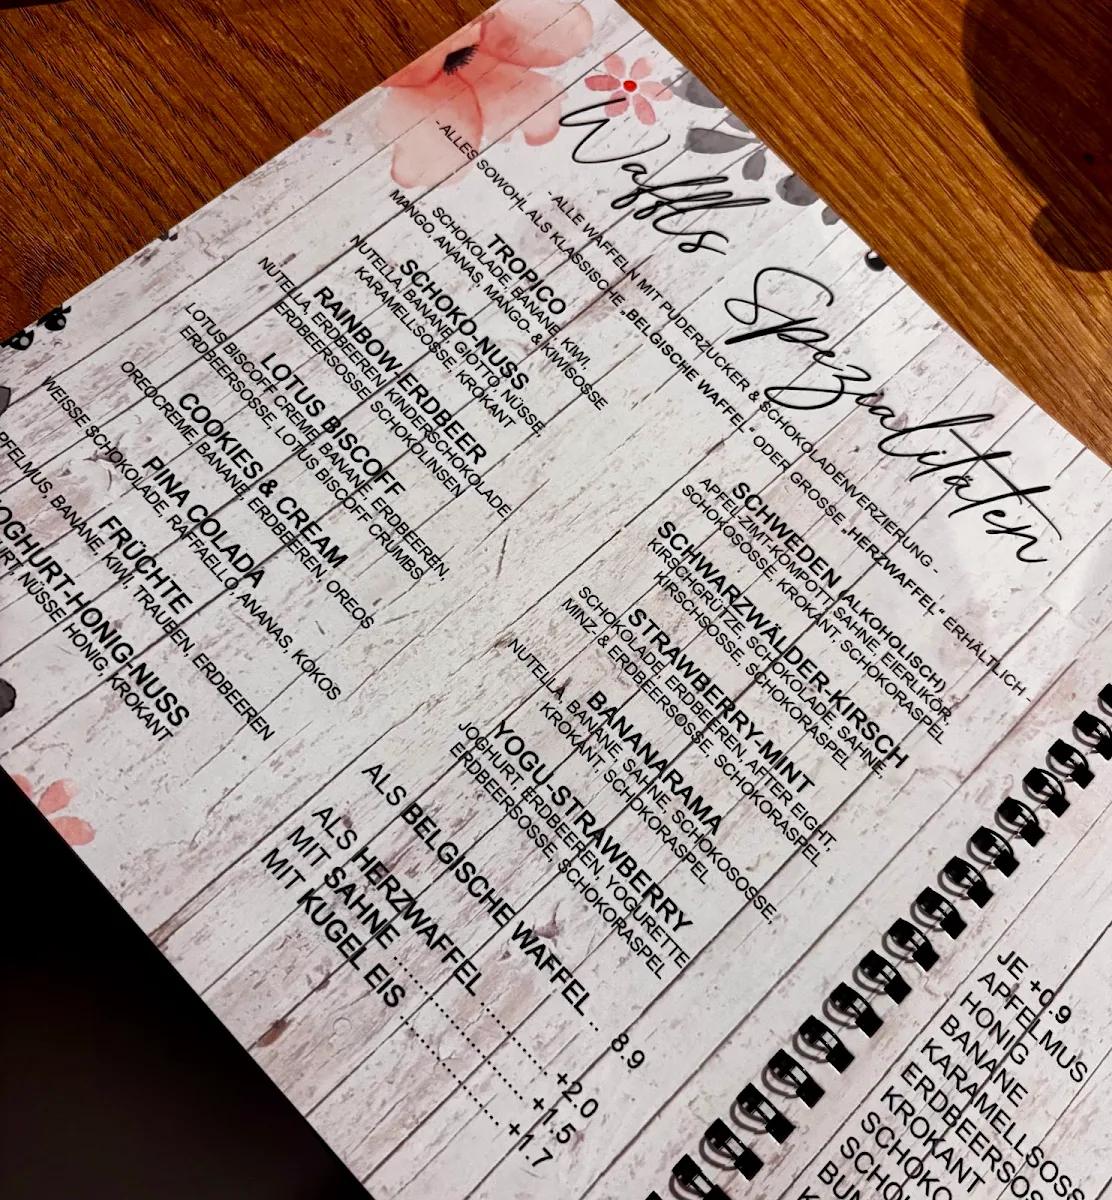 Waffls Spezialitäten
- ALLE WAFFELN MIT PUDERZUCKER & SCHOKOLADENVERZIERUNG -
- ALLES SOWOHL ALS KLASSISCHE „BELGISCHE WAFFE" ODER GROSSE „HERZWAFFEL" ERHÄLTLICH -
TROPICO
SCHOKOLADE, BANANE, KIWI,
MANGO, ANANAS, MANGO- & KIWISOSSE
SCHOKO-NUSS
NUTELLA, BANANE, GIOTTO, NÜSSE,
KARAMELLSOSSE, KROKANT
RAINBOW ERDBEER
NUTELLA, ERDBEEREN, KINDERSCHOKOLADE
ERDBEERSOSSE, SCHOKOLINSEN
LOTUS BISCOFF
LOTUS BISCOFF CREME, BANANE, ERDBEEREN,
ERDBEERSOSSE, LOTUS BISCOFF CRUMBS
COOKIES & CREAM
OREOCREME, BANANE, ERDBEEREN, OREOS
PINA COLADA
WEISSE SCHOKOLADE, RAFFAELLO, ANANAS, KOKOS
FRÜCHTE
PFELMUS, BANANE, KIWI, TRAUBEN, ERDBEEREN
OGHURT-HONIG-NUSS
URT, NÜSSE, HONIG, KROKANT
SCHWEDEN (ALKOHOLISCH)
APFELZIMT-KOMPOTT, SAHNE, EIERLIKÖR,
SCHOKOSOSSE, KROKANT, SCHOKORASPEL
SCHWARZWÄLDER-KIRSCH
KIRSCHGRÜTZE, SCHOKOLADE, SAHNE,
KIRSCHSOSSE, SCHOKORASPEL
STRAWBERRY-MINT
SCHOKOLADE, ERDBEEREN, AFTER EIGHT,
MINZ- & ERDBEERSOSSE, SCHOKORASPEL
BANANARAMA
NUTELLA, BANANE, SAHNE, SCHOKOSOSSE,
KROKANT, SCHOKORASPEL
YOGU-STRAWBERRY
JOGHURT, ERDBEEREN, YOGURETTE
ERDBEERSOSSE, SCHOKORASPEL
ALS BELGISCHE WAFFEL .. 8.9
ALS HERZWAFFEL .......... +2.0
MIT SAHNE .......... +1.5
MIT KUGEL EIS .......... +1.7
JE +0.9
APFELMUS
HONIG
BANANE
KARAMELLSOSS
ERDBEERSO
KROKANT
SCHOKO
SCHO
BUN